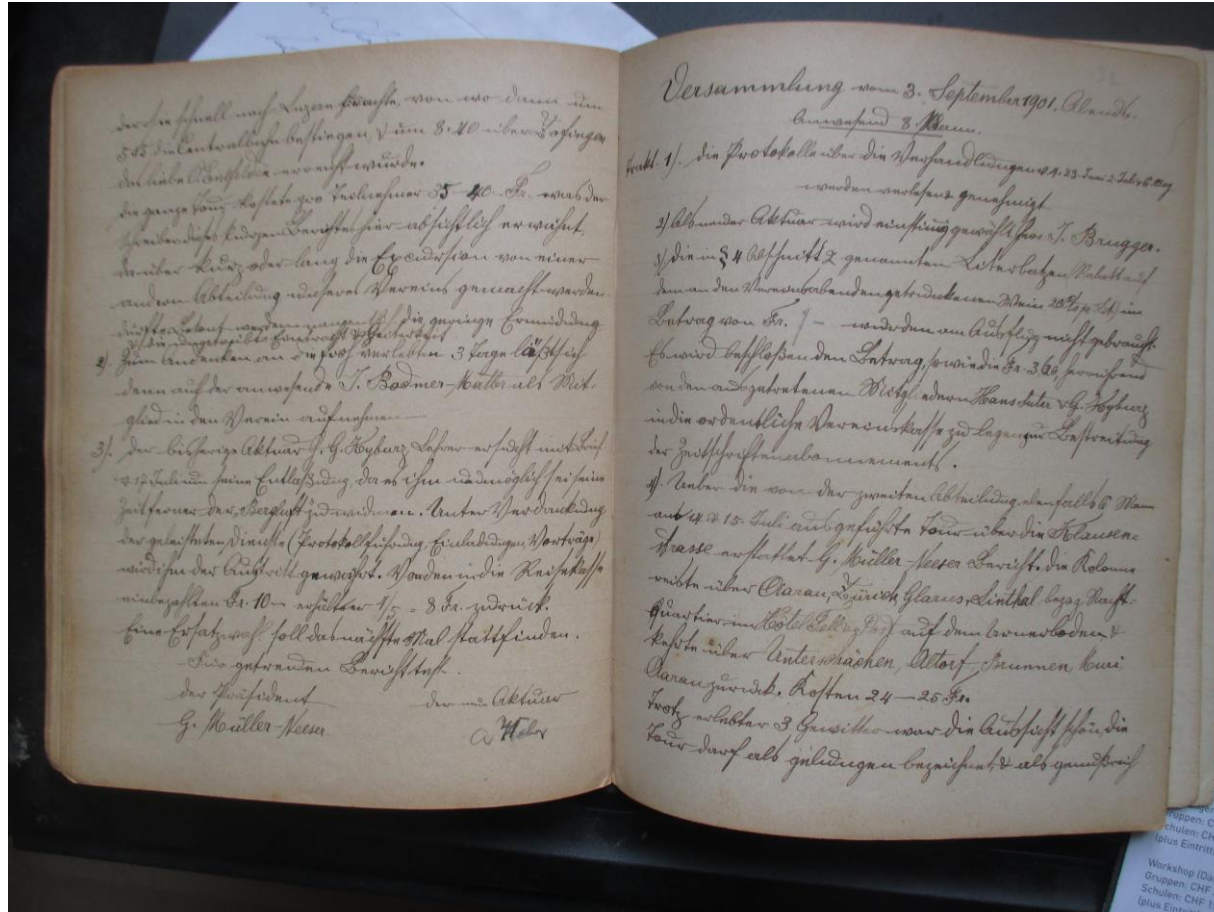 der sie schnell nach Luzern brachte, von wo dann um
5.15 die Centralbahn bestiegen, & um 8.40 über Zofingen
das liebe erreicht wurde.
die ganze Tour kostete pro Teilnehmer 35-40 Fr. was der
Schreiber dieses kurzen Berichtes hier absichtlich erwähnt,
da über kurz oder lang die Excursion von einer
andern Abteilung unseres Vereins gemacht werden
dürfte. die geringe Ermüdung
& die ungetrübte Eintracht & Heiterkeit
2) Zum Andenken an die froh verlebten 3 Tage läßt sich
denn auch der anwesende J. Bodmer-Matter als Mit-
glied in den Verein aufnehmen
3). der bisherige Aktuar H. G. Kyburz Lehrer ersucht mit Brief
v. Juli um seine Entlaßung, da es ihm unmöglich sei seine
Zeit ferner der "Bergluft" zu widmen. Unter Verdankung
der geleisteten Dienste (Protokollführung, Einladungen, Vorträge)
wird ihm der Austritt gewährt. Von den in die Reisekasse
einbezahlten Fr. 10 – erhält er 4/5 = 8 Fr. zurück.
Eine Ersatzwahl soll das nächste Mal stattfinden.
Für getreuen Bericht
der Präsident der Aktuar
G. Müller-Neeser
Versammlung vom 3. September 1901, Abends.
Anwesend 8 Mann.
Trakt. 1). die Protokolle über die Verhandlungen v. 23. Juni 2. Juli & 6. Aug
werden verlesen & genehmigt
2) Als neuer Aktuar wird einstimmig gewählt Herr J. Brugger.
3) die in § 4 Abschnitt 2 genannten Literbatzen (Rabatt auf
dem an den Vereinsabenden getrunkenen Wein 20 Cts per Lit) im
Betrag von Fr. – wurden am Ausflug nicht gebraucht.
Es wird beschloßen den Betrag, sowie die Fr. 3, herrührend
von den ausgetretenen Mitgliedern Hans Suter & G. Kyburz
in die ordentliche Vereinskasse zu legen zur Bestreitung
der Zeitschriftenabonnements.
4). Ueber die von der zweiten Abteilung, ebenfalls 6 Mann
am 14 & 15. Juli ausgeführte Tour über die Klausen-
strasse erstattet G. Müller-Neeser Bericht. die Kolonne
reiste über Aarau, Zürich, Glarus, Linthal bezog Nacht-
quartier im Hôtel Tell & Post auf dem Urnerboden &
kehrte über Unterschächen, Altorf, Brunnen, Muri
Aarau zurück. Kosten 24 – 25 Fr.
Trotz erlebter 3 Gewitter war die Aussicht schön, die
Tour darf als gelungen bezeichnet, & als genußreich
Gruppen: C
Schulen: CH
(plus Eintritt
Workshop (Da
Gruppen: CHF
Schulen: CHF 1
(plus Eintri